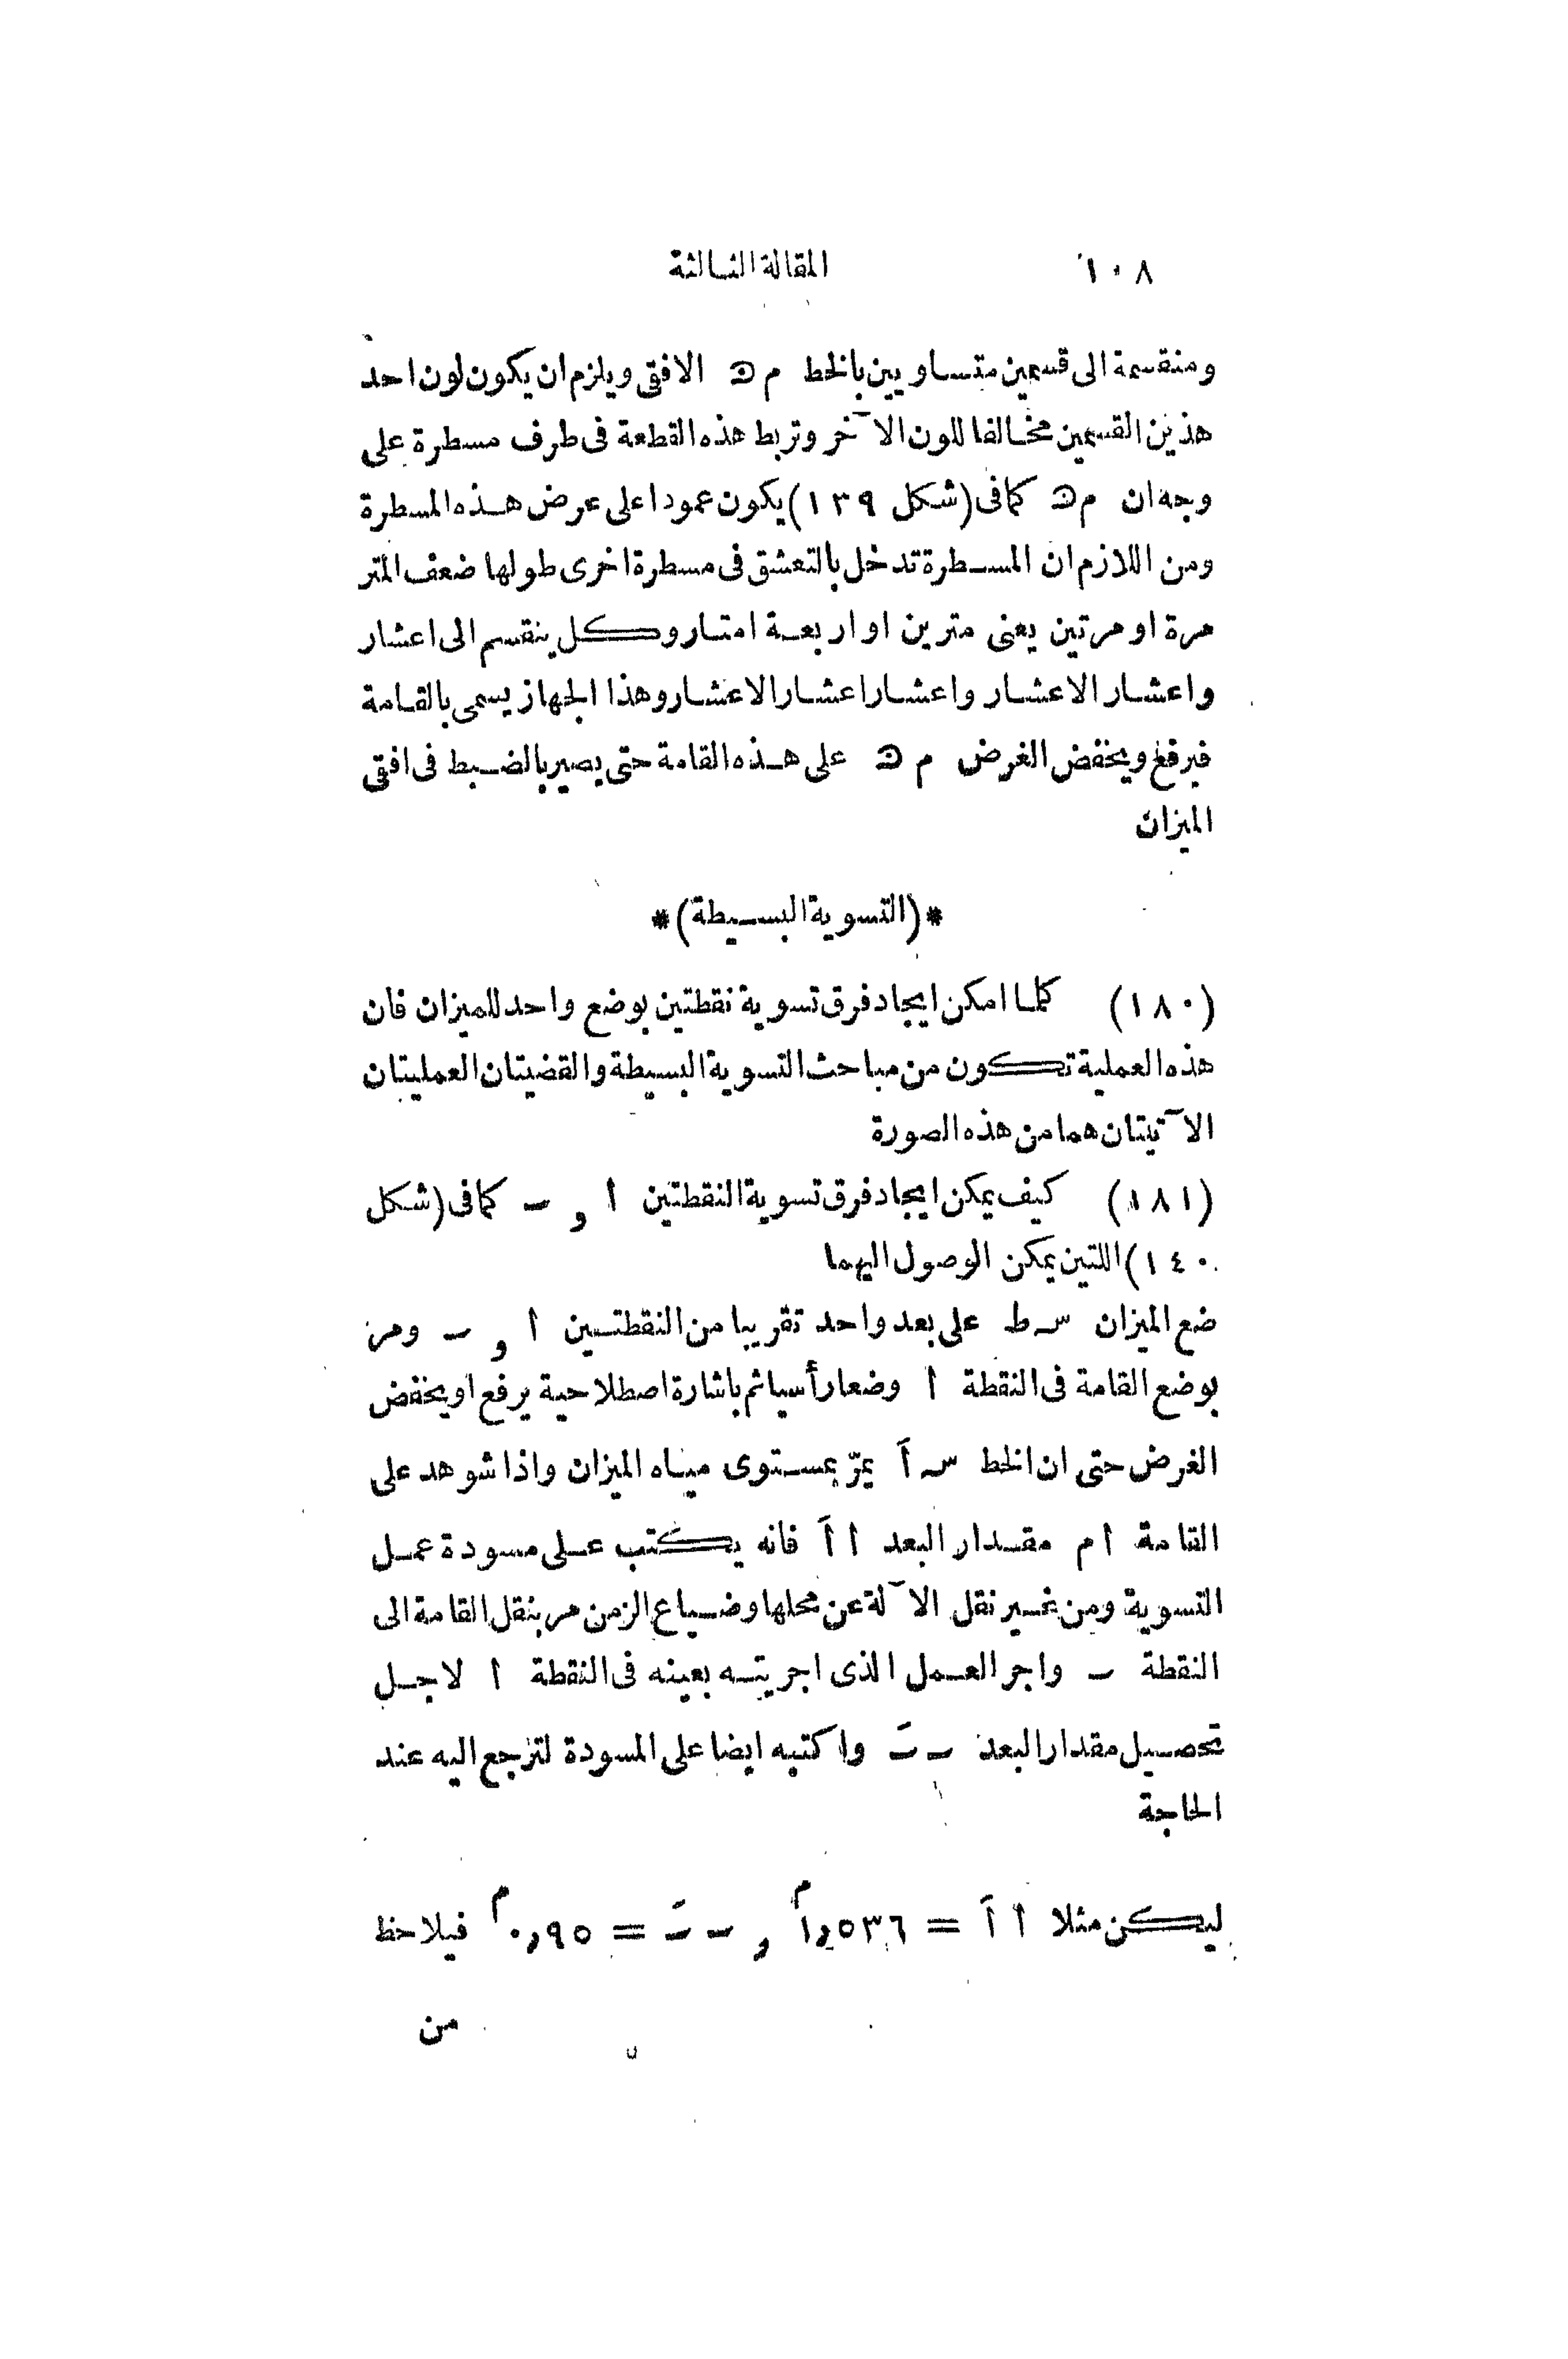 ١٠٨ المقالة الثالثة
ومنقسمة الى قسمين متساويين بالخط م ن الافقى ويلزم ان يكون لون احد
هذين القسمين مخالفا للون الآخر وتربط هذه القطعة فى طرف مسطرة على
وجه ان م ن كما فى (شكل ١٣٩) يكون عمودا على عرض هذه المسطرة
ومن اللازم ان المسطرة تدخل بالتعشق فى مسطرة اخرى طولها ضعف المتر
مرة او مرتين يعنى مترين او اربعة امتار وكل ينقسم الى اعشار
واعشار الاعشار واعشار اعشار الاعشار وهذا الجهاز يسمى بالقامة
فيرفع ويخفض الغرض م ن على هذه القامة حتى يصير بالضبط فى افقى
الميزان
*(التسوية البسيطة)*
(١٨٠) كلما امكن ايجاد فرق تسوية نقطتين بوضع واحد للميزان فان
هذه العملية تكون من مباحث التسوية البسيطة والقضيتان العمليتان
الآتيتان هما من هذه الصورة
(١٨١) كيف يمكن ايجاد فرق تسوية النقطتين ا و ٮ كما فى (شكل
١٤٠) اللتين يمكن الوصول اليهما
ضع الميزان سـ ط على بعد واحد تقريبا من النقطتين ا و ٮ ومر
بوضع القامة فى النقطة ا وضعا رأسيا ثم باشارة اصطلاحية يرفع او يخفض
الغرض حتى ان الخط سـ اَ يمرّ بمستوى مياه الميزان واذا شوهد على
القامة ا م مقدار البعد ا اَ فانه يكتب على مسودة عمل
التسوية ومن غير نقل الآلة عن محلها وضياع الزمن مر بنقل القامة الى
النقطة ٮ واجر العمل الذى اجريته بعينه فى النقطة ا لاجل
تحصيل مقدار البعد ٮ ٮَ واكتبه ايضا على المسودة لترجع اليه عند
الحاجة
ليكن مثلا ا اَ = ١,٥٣٦م و ٮ ٮَ = ٠,٩٥م فيلاحظ
من